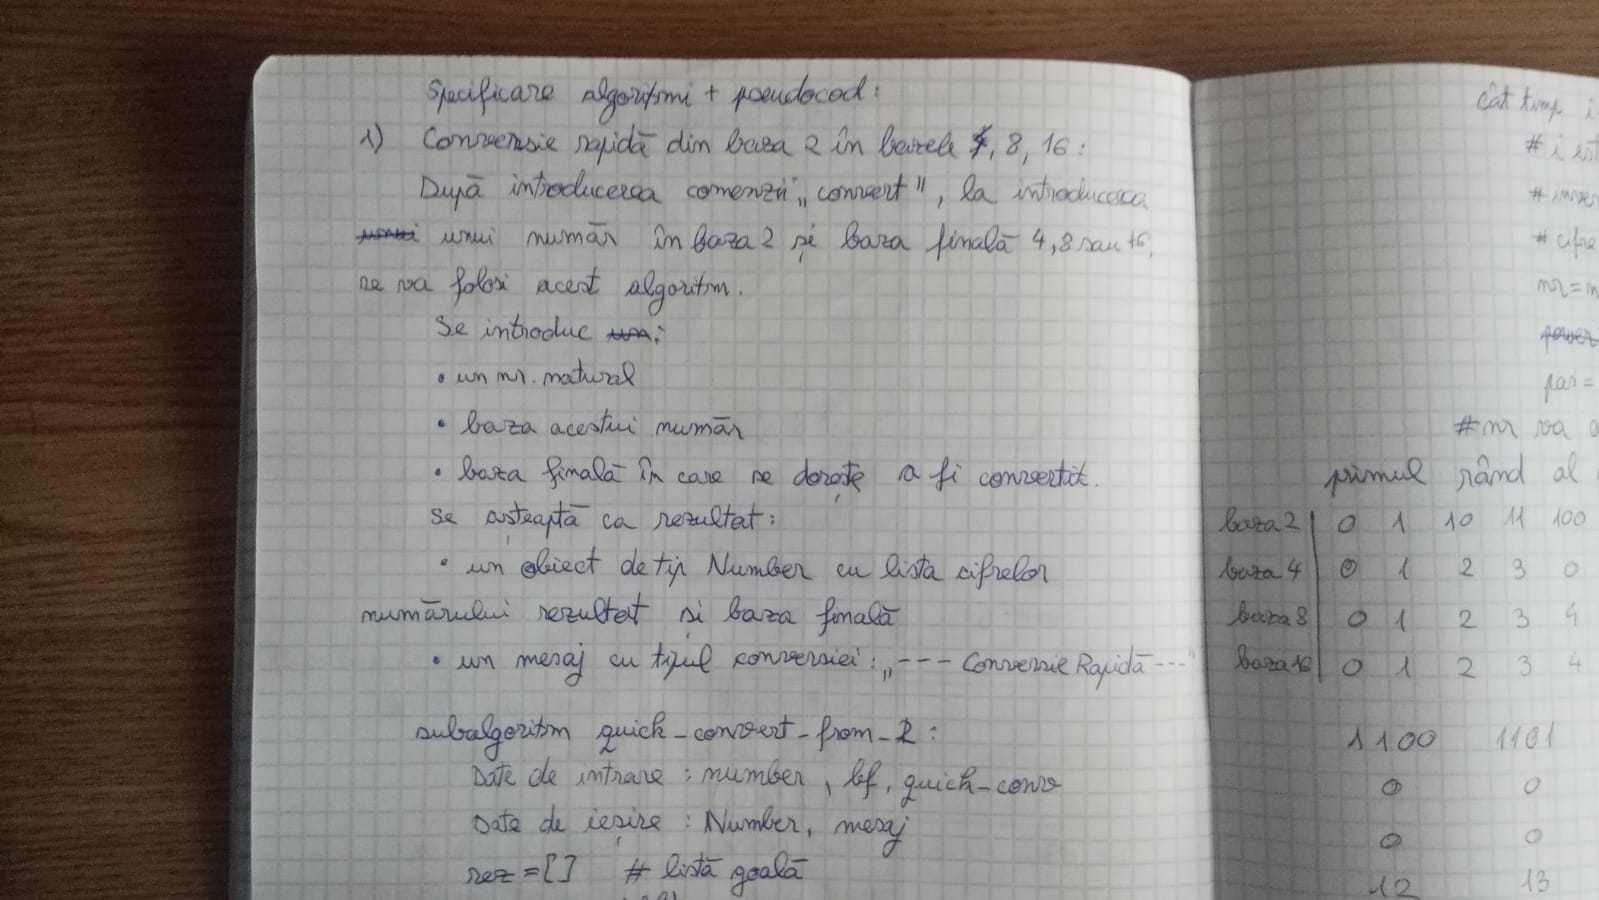 Specificare algoritmi + pseudocod:
1) Conversie rapidă din baza 2 în bazele 4, 8, 16:
După introducerea comenzii „convert", la introducerea
unui număr în baza 2 și baza finală 4, 8 sau 16,
se va folosi acest algoritm.
Se introduc :
• un nr. natural
• baza acestui număr
• baza finală în care se dorește a fi convertit.
Se așteaptă ca rezultat:
• un obiect de tip Number cu lista cifrelor
numărului rezultat și baza finală
• un mesaj cu tipul conversiei: „--- Conversie Rapidă ---"
subalgoritm quick-convert-from-2:
Date de intrare: number, bf, quick-conv
Date de ieșire: Number, mesaj
rez = [] # listă goală
Cât timp i
# i est
# inver
# cifre
nr=n
par =
#nr va a
primul rând al
baza 2 | 0 1 10 11 100
baza 4 | 0 1 2 3 0
baza 8 | 0 1 2 3 4
baza 16 | 0 1 2 3 4
1100 1101
0 0
0 0
12 13